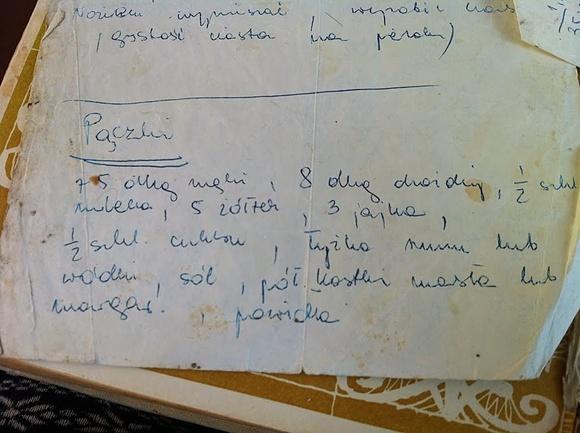 wymieszać, wyrobić
(gęstość ciasta na pierogi)
Pączki
75 dkg mąki, 8 dkg drożdży, 1/2 szkl.
mleka, 5 żółtek, 3 jajka,
1/2 szkl. cukru, łyżka rumu lub
wódki, sól, pół kostki masła lub
margar., powidła